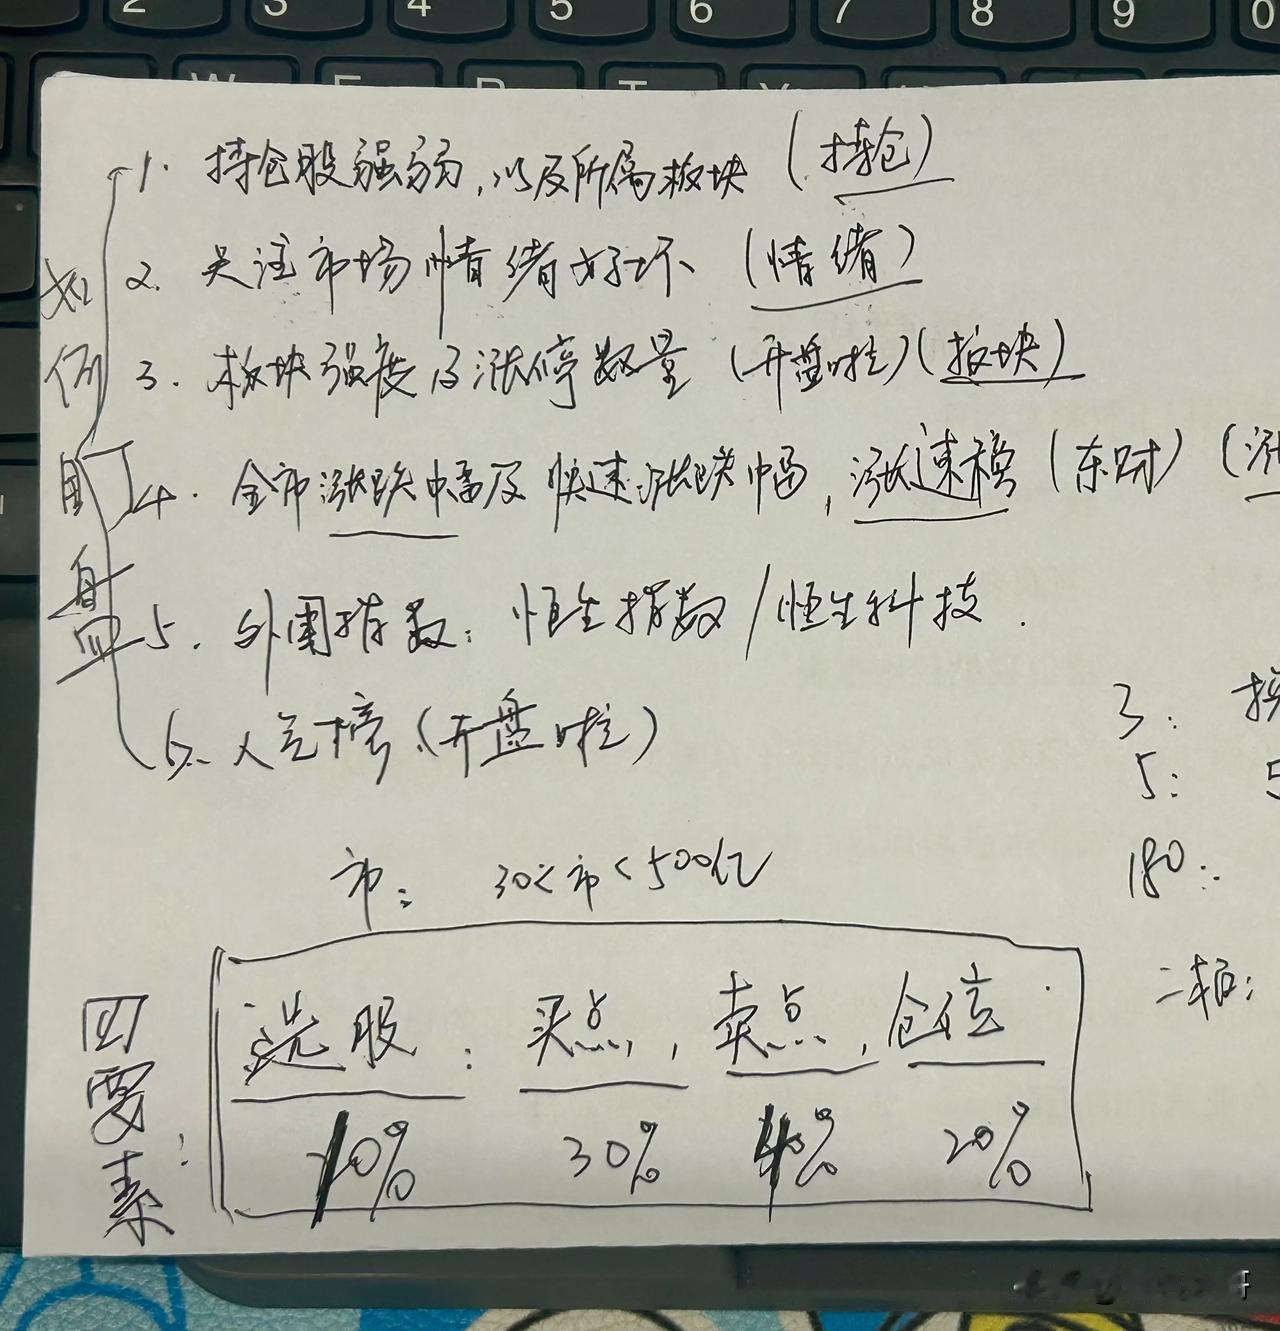 2 3 4 5 6 7 8 9 0
W E R T Y
如何盯盘
1. 持仓股强弱,以及所属板块 (持仓)
2. 关注市场情绪好坏 (情绪)
3. 板块强度及涨停数量 (开盘啦)(板块)
4. 全市涨跌幅及快速涨跌幅,涨速榜 (东财) (涨
5. 外围指数: 恒生指数/恒生科技.
6. 人气榜 (开盘啦)
3:
5: 5
市: 30<市<500亿
180:
四要素:
选股: 买点, 卖点, 仓位
10% 30% 40% 20%